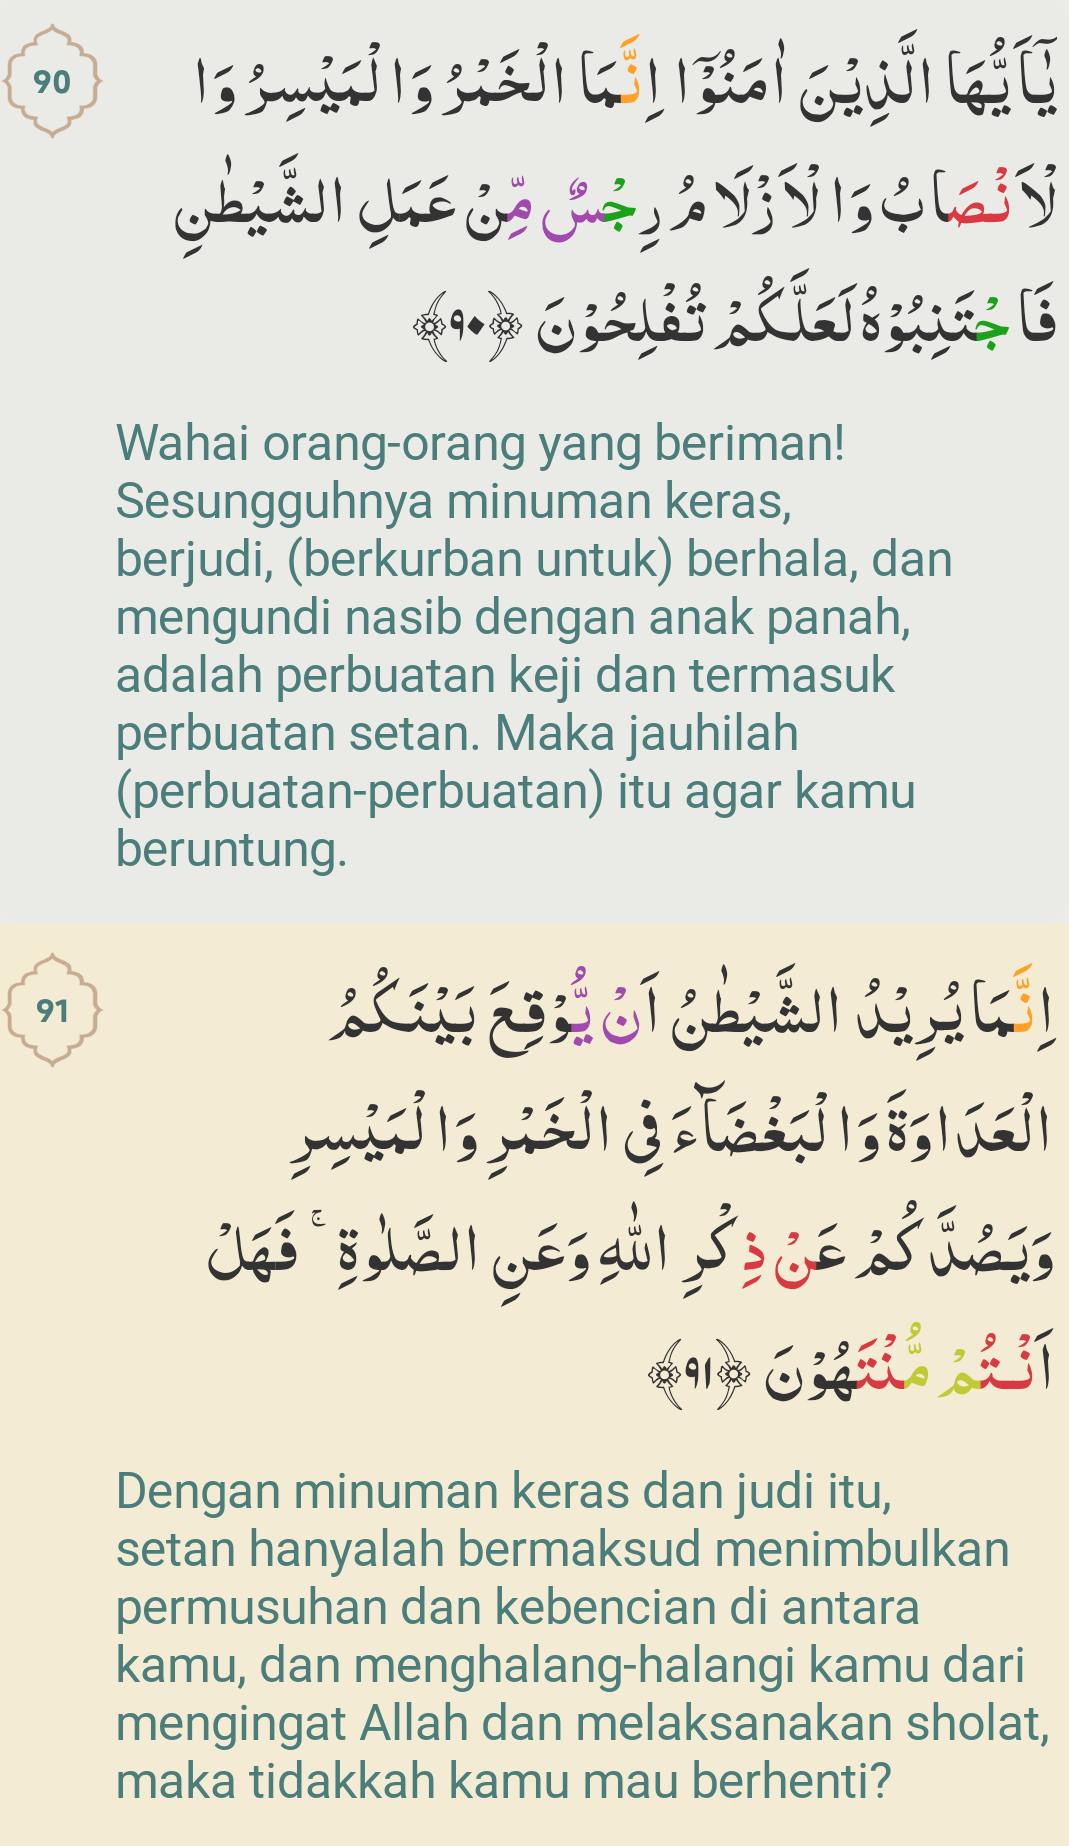 90
يٰٓاَيُّهَا الَّذِيْنَ اٰمَنُوْٓا اِنَّمَا الْخَمْرُ وَالْمَيْسِرُ وَا
لْاَنْصَابُ وَالْاَزْلَامُ رِجْسٌ مِّنْ عَمَلِ الشَّيْطٰنِ
فَاجْتَنِبُوْهُ لَعَلَّكُمْ تُفْلِحُوْنَ ﴿٩٠﴾
Wahai orang-orang yang beriman!
Sesungguhnya minuman keras,
berjudi, (berkurban untuk) berhala, dan
mengundi nasib dengan anak panah,
adalah perbuatan keji dan termasuk
perbuatan setan. Maka jauhilah
(perbuatan-perbuatan) itu agar kamu
beruntung.
91
اِنَّمَا يُرِيْدُ الشَّيْطٰنُ اَنْ يُّوْقِعَ بَيْنَكُمُ
الْعَدَاوَةَ وَالْبَغْضَاۤءَ فِى الْخَمْرِ وَالْمَيْسِرِ
وَيَصُدَّكُمْ عَنْ ذِكْرِ اللّٰهِ وَعَنِ الصَّلٰوةِ ۚ فَهَلْ
اَنْتُمْ مُّنْتَهُوْنَ ﴿٩١﴾
Dengan minuman keras dan judi itu,
setan hanyalah bermaksud menimbulkan
permusuhan dan kebencian di antara
kamu, dan menghalang-halangi kamu dari
mengingat Allah dan melaksanakan sholat,
maka tidakkah kamu mau berhenti?